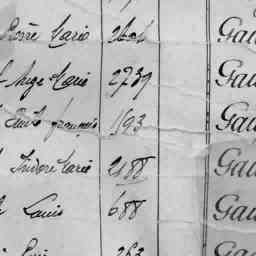 Pierre Marie 2604 Gau
Ange Marie 2739 Gau
Emile François 1193 Gau
Isidore Marie 2188 Gau
Louis 688 Gau
263 Gau